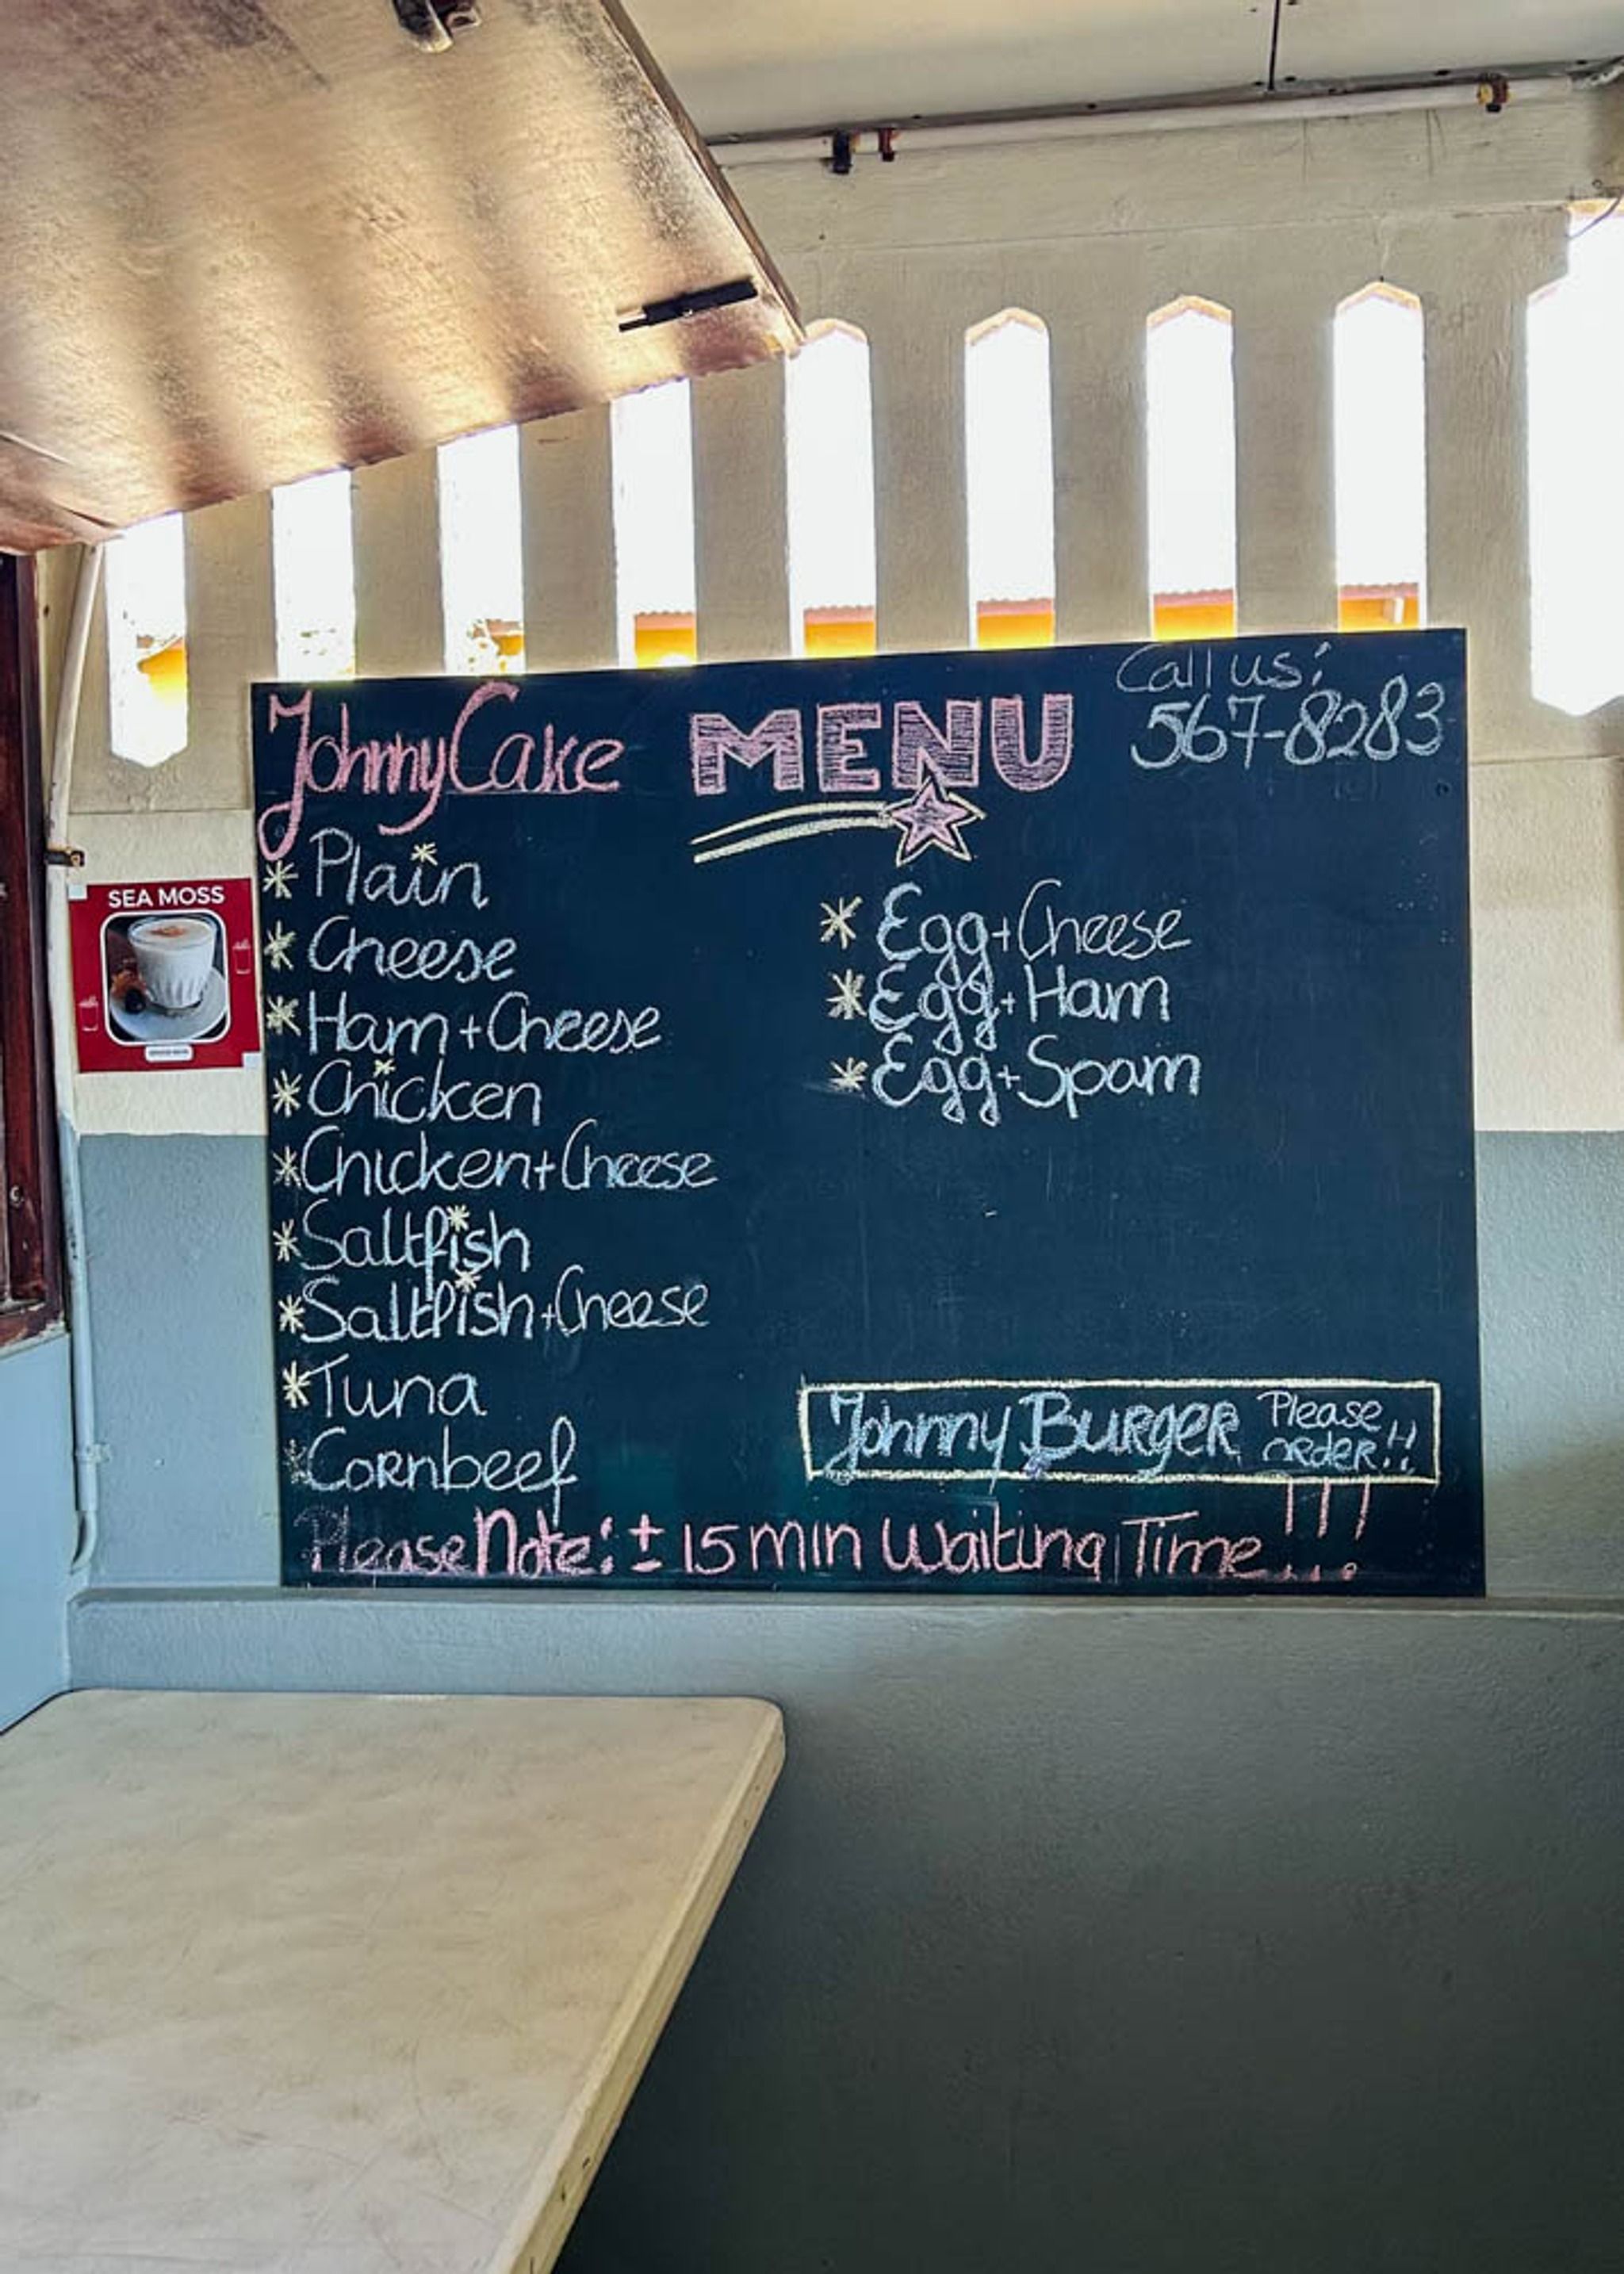 JohnnyCake MENU
Call us:
567-8283
SEA MOSS
* Plain
* Cheese
* Ham+Cheese
* Chicken
* Chicken+Cheese
* Saltfish
* Saltfish+Cheese
* Tuna
* Cornbeef
* Egg+Cheese
* Egg+Ham
* Egg+Spam
Johnny BURGER Please
order!!
Please Note: ± 15 min Waiting Time...!!!